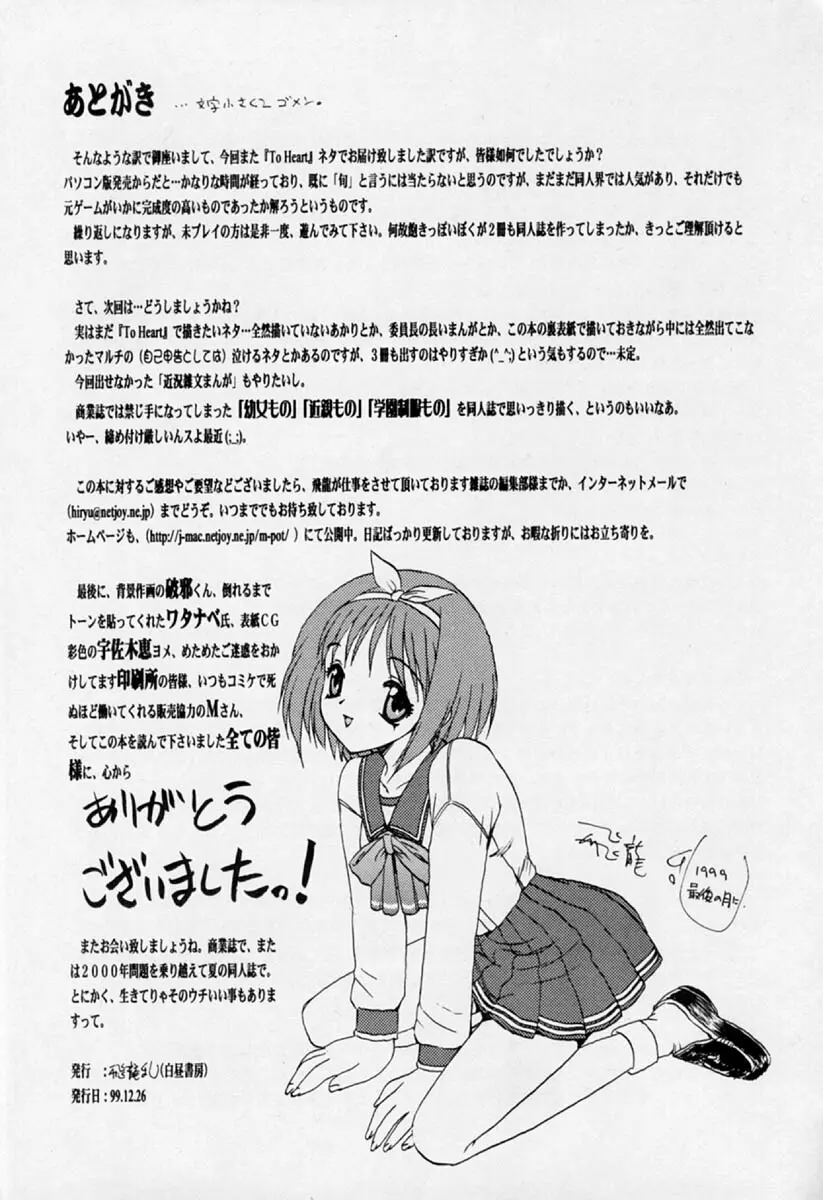 あとがき …文字小さくてゴメン。
そんなような訳で御座いまして、今回また『To Heart』ネタでお届け致しました訳ですが、皆様如何でしたでしょうか？
パソコン版発売からだと…かなりな時間が経っており、既に「旬」と言うには当たらないと思うのですが、まだまだ同人界では人気があり、それだけでも
元ゲームがいかに完成度の高いものであったか解ろうというものです。
繰り返しになりますが、未プレイの方は是非一度、遊んでみて下さい。何故飽きっぽいぼくが２冊も同人誌を作ってしまったか、きっとご理解頂けると
思います。
さて、次回は…どうしましょうかね？
実はまだ『To Heart』で描きたいネタ…全然描いていないあかりとか、委員長の長いまんがとか、この本の裏表紙で描いておきながら中には全然出てこな
かったマルチの（自己申告としては）泣けるネタとかあるのですが、３冊も出すのはやりすぎか(^_^;)という気もするので…未定。
今回出せなかった「近況雑文まんが」もやりたいし。
商業誌では禁じ手になってしまった「幼女もの」「近親もの」「学園制服もの」を同人誌で思いっきり描く、というのもいいなあ。
いやー、締め付け厳しいんスよ最近(;_;)。
この本に対するご感想やご要望などございましたら、飛龍が仕事をさせて頂いております雑誌の編集部様までか、インターネットメールで
(hiryu@netjoy.ne.jp)までどうぞ。いつまででもお待ち致しております。
ホームページも、(http://j-mac.netjoy.ne.jp/m-pot/ )にて公開中。日記ばっかり更新しておりますが、お暇な折りにはお立ち寄りを。
最後に、背景作画の破邪くん、倒れるまで
トーンを貼ってくれたワタナベ氏、表紙ＣＧ
彩色の宇佐木恵ヨメ、めためたご迷惑をおか
けしてます印刷所の皆様、いつもコミケで死
ぬほど働いてくれる販売協力のＭさん、
そしてこの本を読んで下さいました全ての皆
様に、心から
ありがとう
ございましたっ！
飛龍
1999
最後の月に
またお会い致しましょうね。商業誌で、また
は２０００年問題を乗り越えて夏の同人誌で。
とにかく、生きてりゃそのウチいい事もありま
すって。
発行　：飛龍乱(白昼書房)
発行日：99.12.26